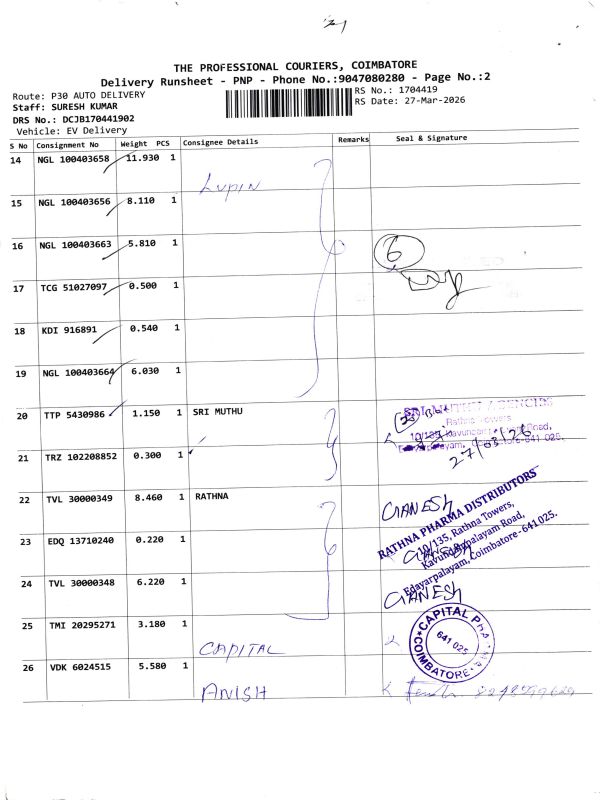 THE PROFESSIONAL COURIERS, COIMBATORE
Delivery Runsheet - PNP - Phone No.:9047080280 - Page No.:2
Route: P30 AUTO DELIVERY
Staff: SURESH KUMAR
DRS No.: DCJB170441902
Vehicle: EV Delivery
RS No.: 1704419
RS Date: 27-Mar-2026
S No Consignment No Weight PCS Consignee Details Remarks Seal & Signature
14 NGL 100403658 11.930 1
LUPIN
15 NGL 100403656 8.110 1
16 NGL 100403663 5.810 1
6
17 TCG 51027097 0.500 1
18 KDI 916891 0.540 1
19 NGL 100403664 6.030 1
20 TTP 5430986 1.150 1 SRI MUTHU
SRI MUTHU AGENCIES
Rathna Towers
Kavundampalayam Road,
Edayarpalayam, Coimbatore-641 025.
27/03/26
21 TRZ 102208852 0.300 1
22 TVL 30000349 8.460 1 RATHNA
GANESH
RATHNA PHARMA DISTRIBUTORS
10/135, Rathna Towers,
Kavundapalayam Road,
Edayarpalayam, Coimbatore-641 025.
23 EDQ 13710240 0.220 1
GANESH
24 TVL 30000348 6.220 1
GANESH
25 TMI 20295271 3.180 1
CAPITAL
CAPITAL
641 025
COIMBATORE
26 VDK 6024515 5.580 1
ANISH